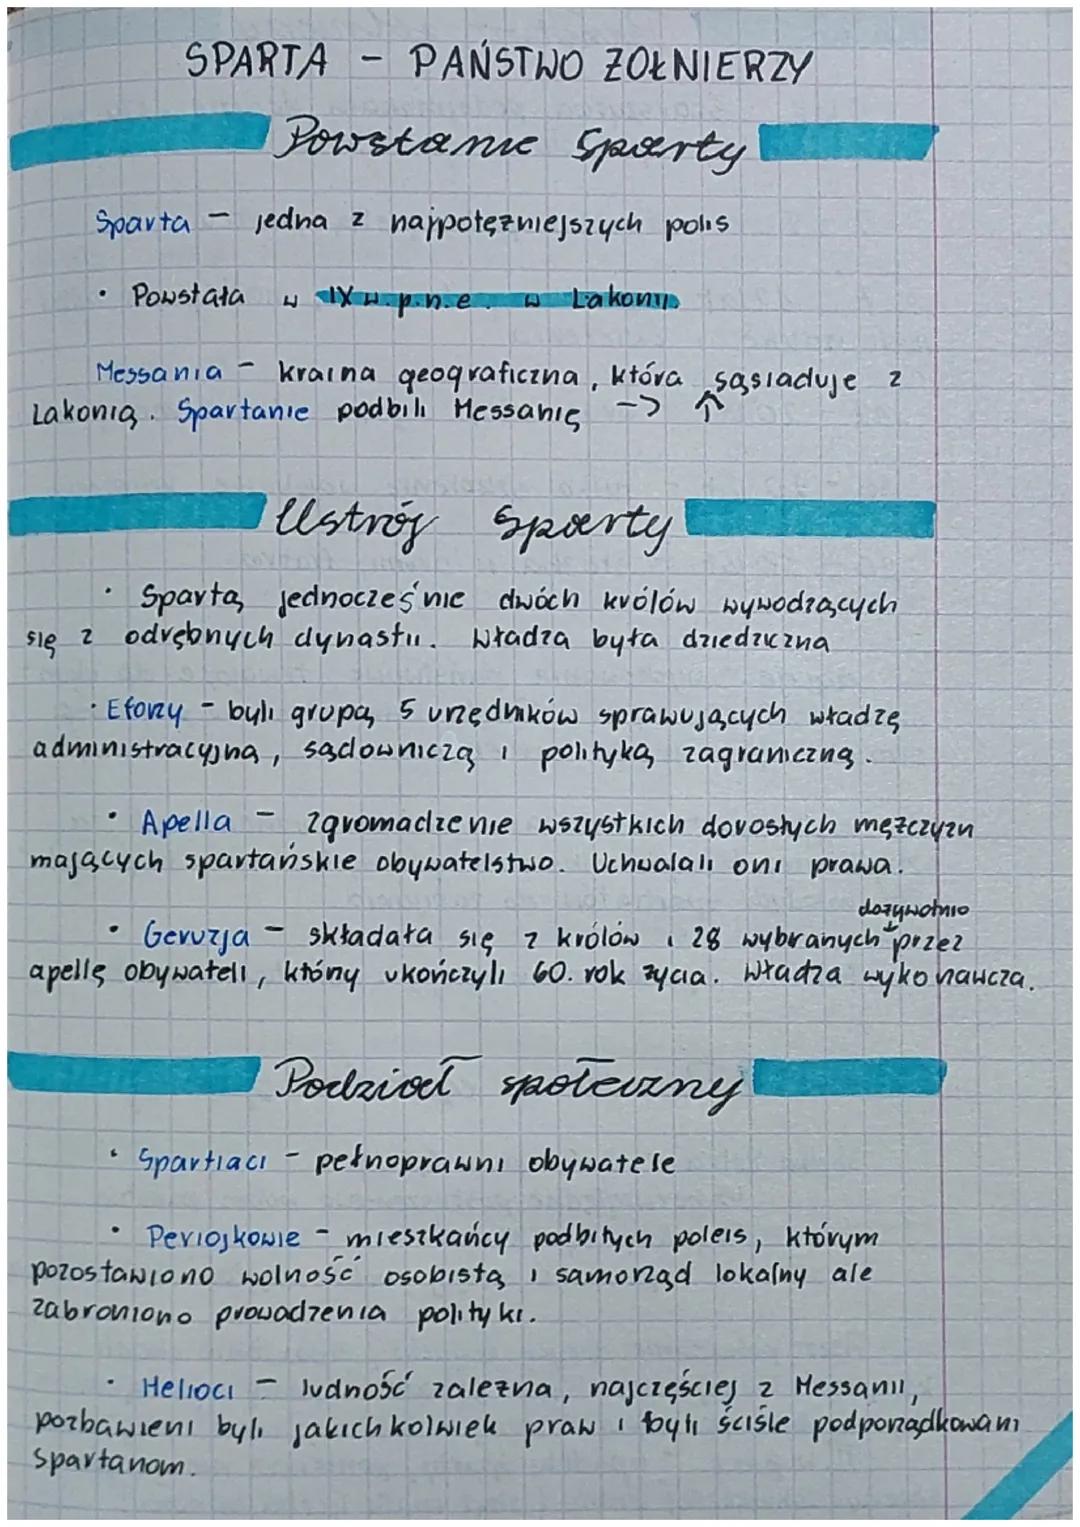 SPARTA - PAŃSTWO ŻOŁNIERZY
Powstanie Sparty
Sparta - jedna z najpotężniejszych polis
• Powstała w IX w. p.n.e. w Lakonii
Messania - kraina geograficzna, która sąsiaduje z
Lakonią. Spartanie podbili Messanię -> ↑
Ustrój Sparty
• Spartą jednocześnie dwóch królów wywodzących
się z odrębnych dynastii. Władza była dziedziczna
• Eforzy - byli grupą 5 urzędników sprawujących władzę
administracyjną, sądowniczą i polityką zagraniczną.
• Apella - zgromadzenie wszystkich dorosłych mężczyzn
mających spartańskie obywatelstwo. Uchwalali oni prawa.
dożywotnio
• Geruzja - składała się z królów i 28 wybranych przez
apellę obywateli, który ukończyli 60. rok życia. Władza wykonawcza.
Podział społeczny
• Spartiaci - pełnoprawni obywatele
• Periojkowie - mieszkańcy podbitych poleis, którym
pozostawiono wolność osobistą i samorząd lokalny ale
zabroniono prowadzenia polityki.
• Helioci - ludność zależna, najczęściej z Messanii,
pozbawieni byli jakichkolwiek praw i byli ściśle podporządkowani
Spartanom.